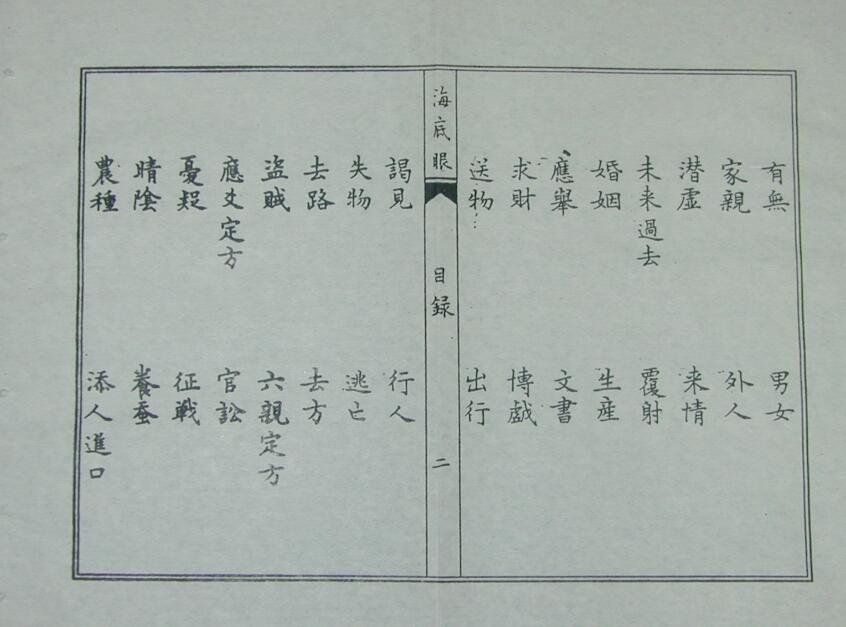 有無 男女
家親 外人
潜虚 来情
未来過去 覆射
婚姻 生産
應舉 文書
求財 博戯
送物 出行
海底眼 目録 二
謁見 行人
失物 逃亡
去路 去方
盗賊 六親定方
應爻定方 官訟
憂疑 征戦
晴陰 養蚕
農種 添人進口